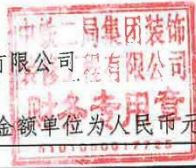 中铁二局集团装饰
工程有限公司
有限公司
财务专用章
金额单位为人民币元